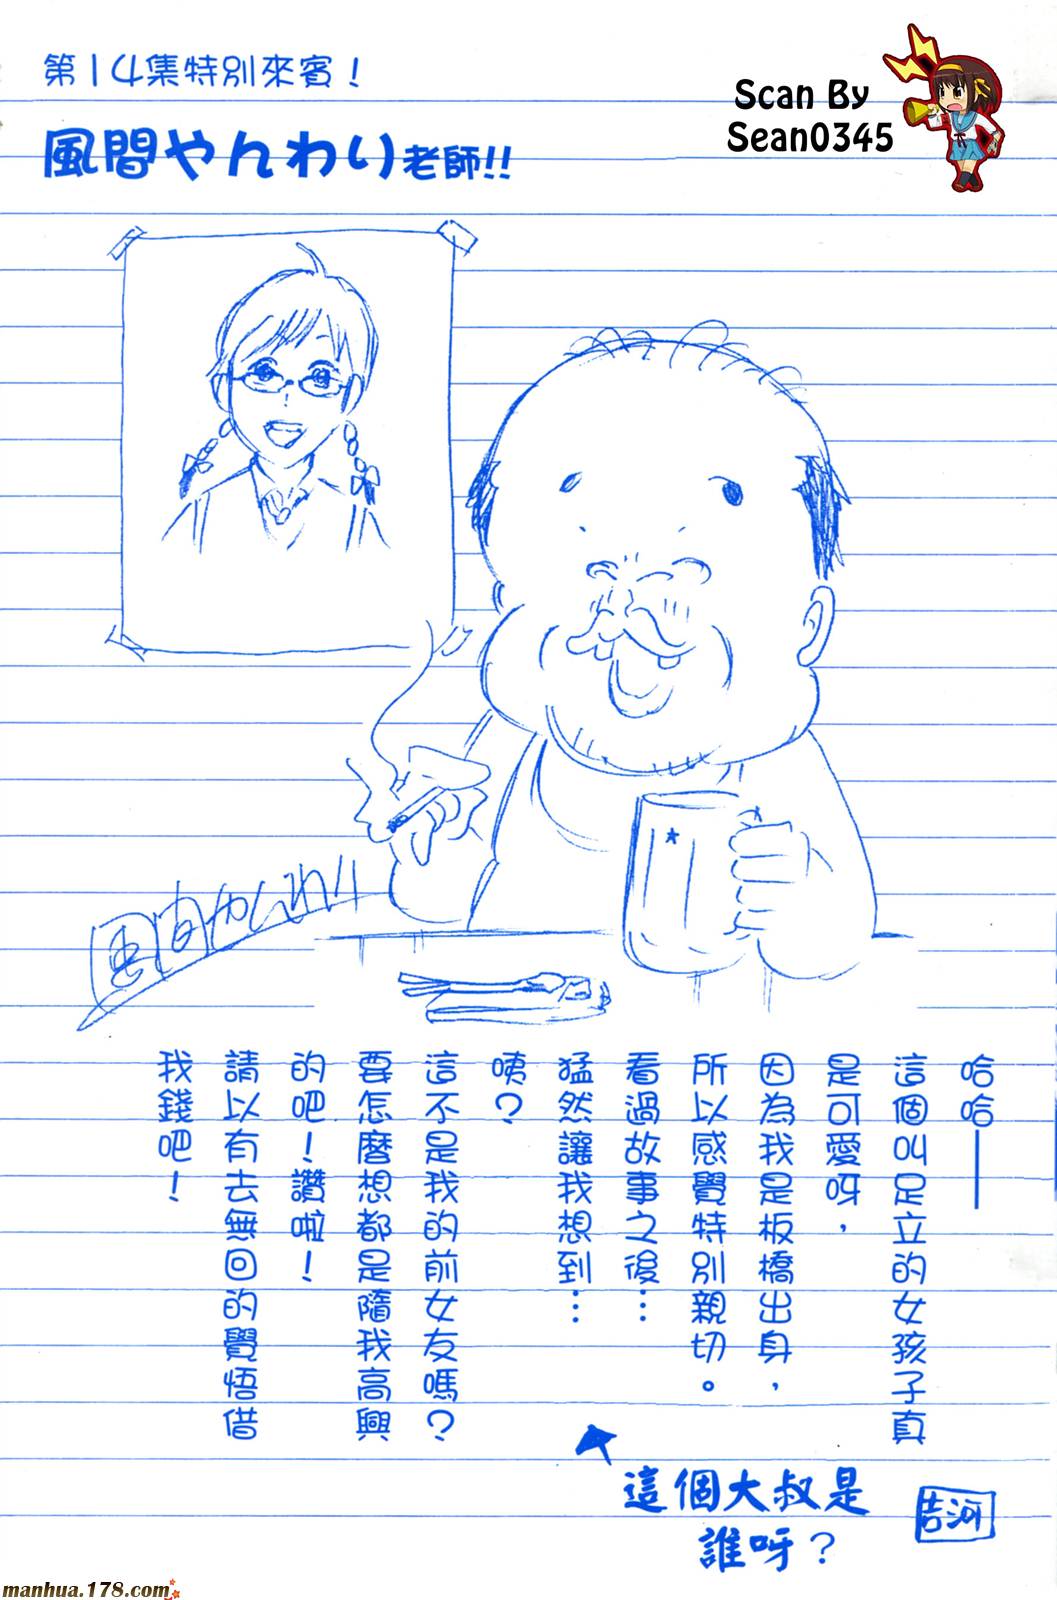 第14集特別來賓！
風間やんわり老師!!
Scan By
Sean0345
風間やんわり
哈哈——
這個叫足立的女孩子真
是可愛呀，
因為我是板橋出身，
所以感覺特別親切。
看過故事之後…
猛然讓我想到…
咦？
這不是我的前女友嗎？
要怎麼想都是隨我高興
的吧！讚啦！
請以有去無回的覺悟借
我錢吧！
這個大叔是
誰呀？
吉河
manhua.178.com